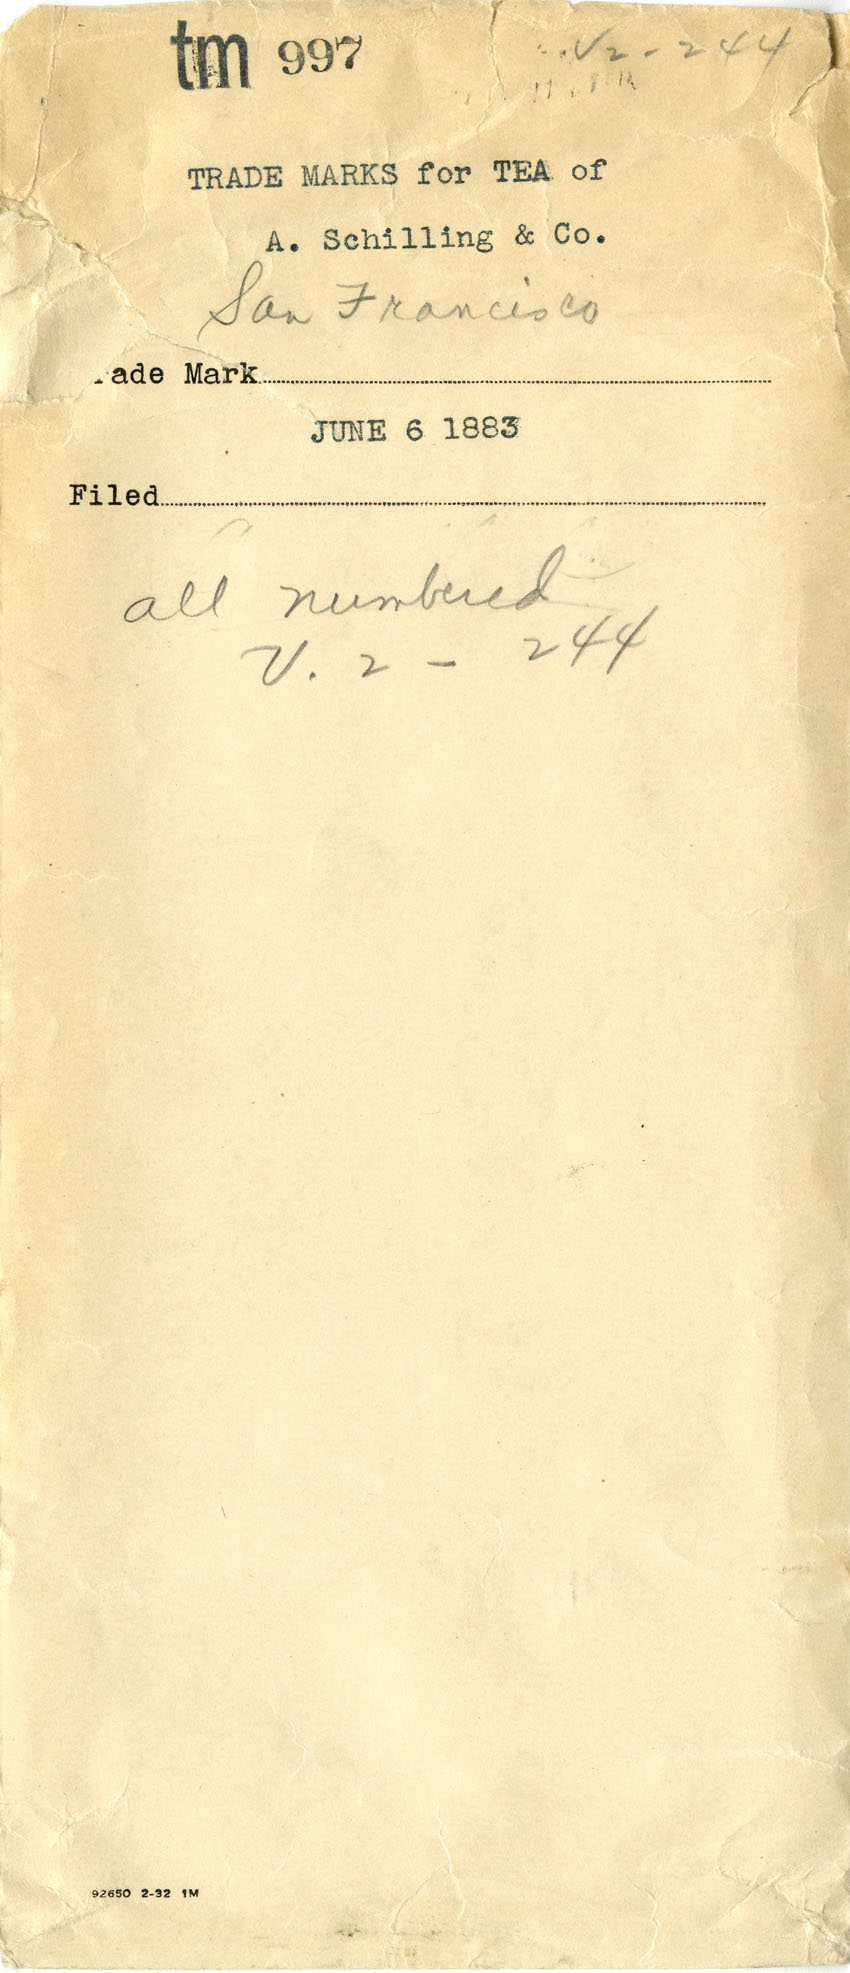 tm 997 V2-244
TRADE MARKS for TEA of
A. Schilling & Co.
San Francisco
ade Mark
JUNE 6 1883
Filed
all numbered
V. 2 - 244
92650 2-32 1M